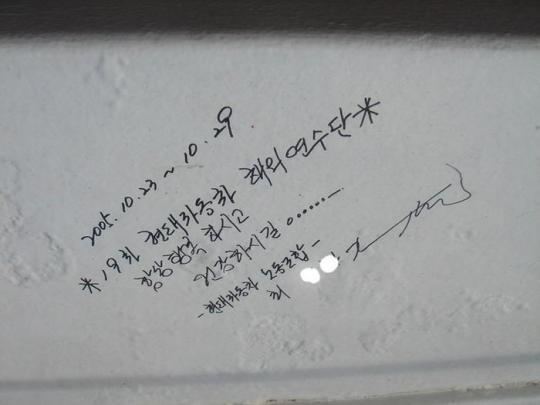 2005. 10. 23 ~ 10. 29
* 19차 현대자동차 해외연수단 *
항상 행복 하시고
건강하시길 ......
- 현대자동차 노동조합 -
최